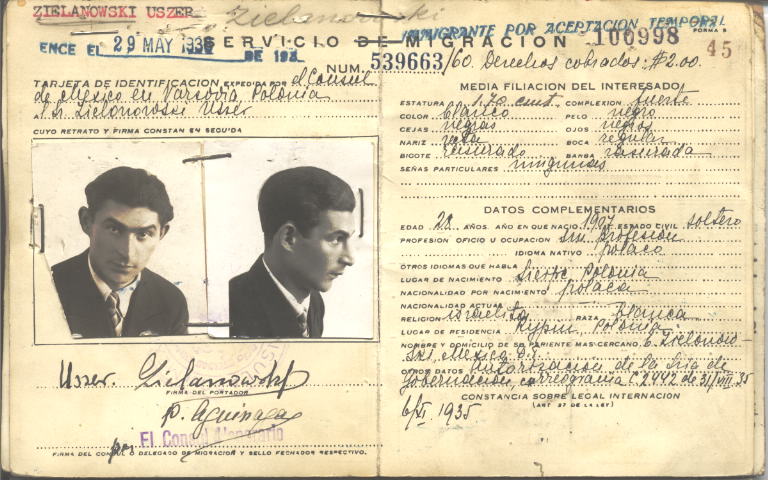 ZIELANOWSKI USZER
Zielanowski
INMIGRANTE POR ACEPTACION TEMPORAL
FORMA 5
ENCE EL 29 MAY 1936
DE 193
SERVICIO DE MIGRACION 100998
45
NUM. 539663/60. Derechos cobrados: $2.00.
TARJETA DE IDENTIFICACION EXPEDIDA POR el Consul
de Mexico en Varsovia Polonia
A
CUYO RETRATO Y FIRMA CONSTAN EN SEGUIDA
Usser. Zielanowski
FIRMA DEL PORTADOR
El Consul
FIRMA DEL CONSUL O DELEGADO DE MIGRACION Y SELLO FECHADOR RESPECTIVO.
MEDIA FILIACION DEL INTERESADO
ESTATURA 1.70 cmt. COMPLEXION fuerte
COLOR blanco PELO negro
CEJAS negras OJOS negros
NARIZ recta BOCA regular
BIGOTE rasurado BARBA rasurada
SEÑAS PARTICULARES ningunas
DATOS COMPLEMENTARIOS
EDAD 28 AÑOS. AÑO EN QUE NACIO 1907 ESTADO CIVIL soltero
PROFESION OFICIO U OCUPACION sin profesion
IDIOMA NATIVO polaco
OTROS IDIOMAS QUE HABLA
LUGAR DE NACIMIENTO Sierpc Polonia
NACIONALIDAD POR NACIMIENTO polaca
NACIONALIDAD ACTUAL
RELIGION israelita RAZA blanca
LUGAR DE RESIDENCIA Rypin Polonia
NOMBRE Y DOMICILIO DE SU PARIENTE MAS CERCANO
Mexico D.F.
OTROS DATOS Autorización de la Sría de
Gobernación, 2442 de 31/VIII.35
CONSTANCIA SOBRE LEGAL INTERNACION
(ART 37 DE LA LEY)
6/XI. 1935